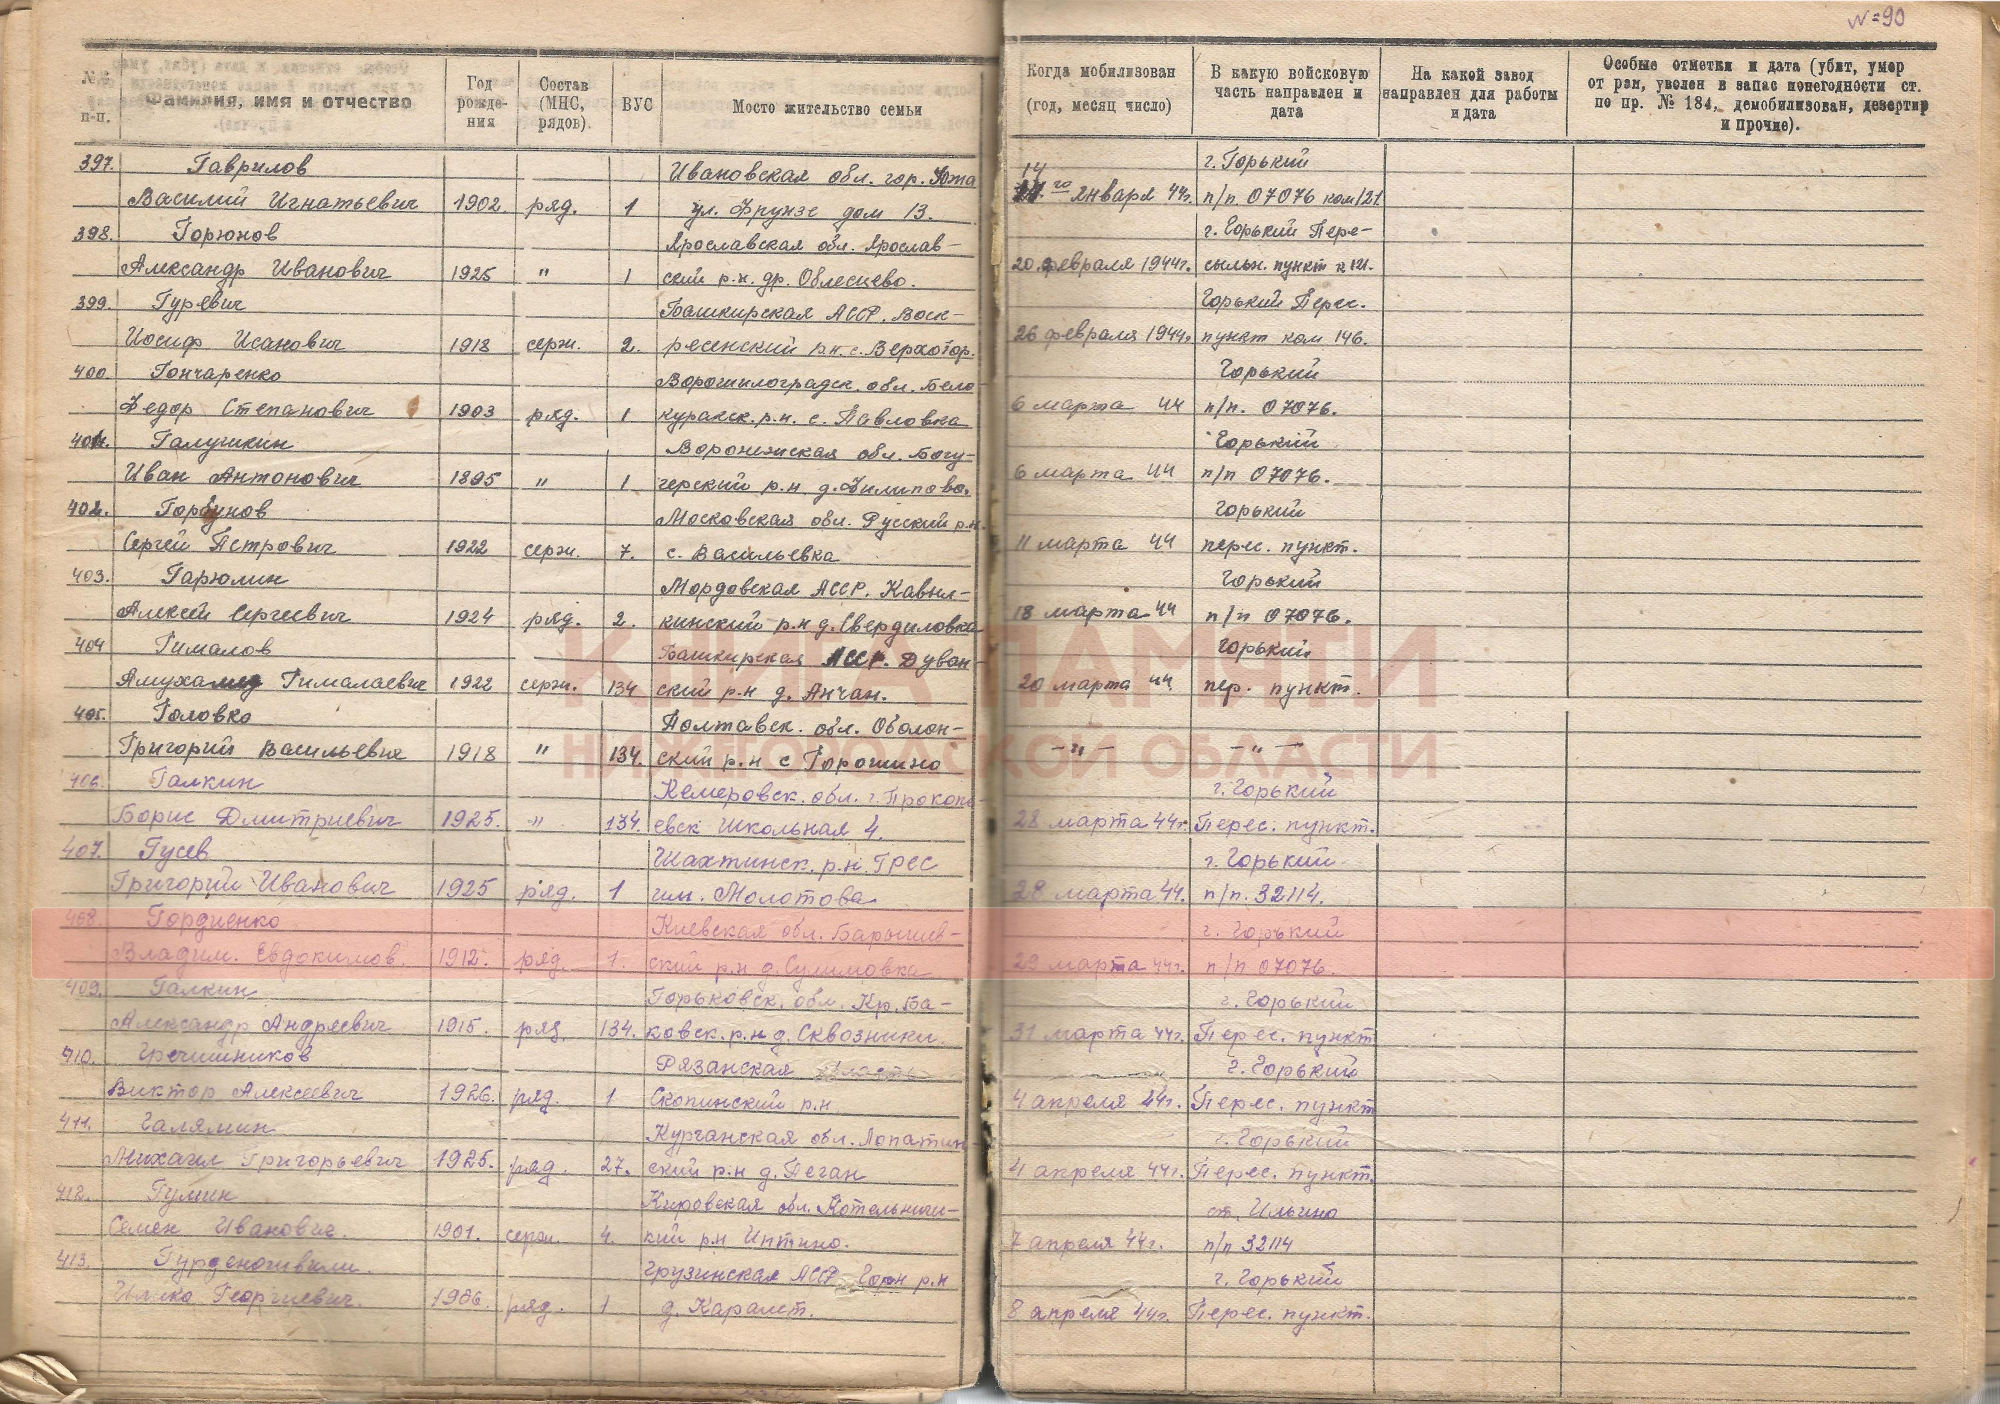 №=90
№№ п-п.
Фамилия, имя и отчество
Год рожде- ния
Состав (МНС, рядов).
ВУС
Мосто жительство семьи
Когда мобилизован (год, месяц число)
В какую войсковую часть направлен и дата
На какой завод направлен для работы и дата
Особые отметки и дата (убит, умер от ран, уволен в запас понегодности ст. по пр. № 184, демобилизован, дезертир и прочие).
397. Гаврилов Ивановская обл. гор. Южа г. Горький
Василий Игнатьевич 1902. ряд. 1 ул. Фрунзе дом 13. 14 го января 44г. п/п 07076 ком 121
398. Горюнов Ярославская обл. Ярослав- г. Горький Пере-
Александр Иванович 1925 " 1 ский р.н. др. Облесцево. 20 февраля 1944г. сыльн. пункт к 121.
399. Гуревич Башкирская АССР. Воск- Горький Перес.
Иосиф Исанович 1918 серж. 2. ресенский р.н. с. Верхотор. 26 февраля 1944г. пункт ком 146.
400. Гончаренко Ворошилоградск. обл. Бело- Горький
Федор Степанович 1903 ряд. 1 куракск. р.н. с. Павловка 6 марта 44 п/п. 07076.
401. Галушкин Воронежская обл. Богу- Горький
Иван Антонович 1895 " 1 черский р.н д. Филипово. 6 марта 44 п/п 07076.
402. Горбунов Московская обл. Русский р.н. Горький
Сергей Петрович 1922 серж. 7. с. Васильевка 11 марта 44 перес. пункт.
403. Гарюлин Мордовская АССР. Кавыл- Горький
Алексей Сергеевич 1924 ряд. 2. кинский р.н д. Свердиловка 18 марта 44 п/п 07076.
404 Гималов Башкирская АССР. Дуван- Горький
Амухамед Гималаевич 1922 серж. 134 ский р.н д. Анчан. 20 марта 44 пер. пункт.
405. Головко Полтавск. обл. Оболон-
Григорий Васильевич 1918 " 134. ский р.н с Горошино -"- -"-
406. Галкин Кемеровск. обл. г. Прокопь- г. Горький
Борис Дмитриевич 1925. -" 134. евск Школьная 4. 28 марта 44г. Перес. пункт.
407. Гусев Шахтинск. р.н. ГРЕС г. Горький
Григорий Иванович 1925 ряд. 1 им. Молотова 28 марта 44. п/п. 32114.
408. Гордиенко Киевская обл. Барышев- г. Горький
Владим. Евдокимов. 1912. ряд. 1. ский р.н д. Сулимовка 29 марта 44г. п/п 07076.
409. Галкин Горьковск. обл. Кр. Ба- г. Горький
Александр Андреевич 1915. ряд. 134. ковск. р.н д. Сквозники. 31 марта 44г. Перес. пункт
410. Гречишников Рязанская область г. Горький
Виктор Алексеевич 1926. ряд. 1 Скопинский р.н. 4 апреля 44г. Перес. пункт
411. Галямин Курганская обл. Лопатин- г. Горький
Михаил Григорьевич 1925. ряд. 27. ский р.н д. Пеган 4 апреля 44г. Перес. пункт.
412. Гулин Кировская обл. Котельнич- ст. Ильино
Семен Иванович. 1901. серж. 4. кий р.н Иптино. 7 апреля 44г. п/п 32114
413. Гурденошвили. Грузинская АССР Гори р.н г. Горький
Илико Георгиевич. 1906. ряд. 1 д. Каралет. 8 апреля 44г. Перес. пункт.
КНИГА ПАМЯТИ
НИЖЕГОРОДСКОЙ ОБЛАСТИ